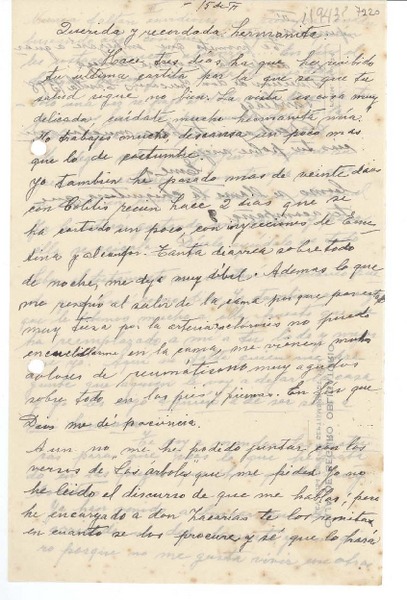 15 de
1943 7220
Querida y recordada hermanita.
Hace tres dias ha que he recibido
tu ultima cartita por la que se que tu
salud sigue no bien. La vista es cosa muy
delicada cuidate mucho hermanita mia.
No trabajes mucho descansa un poco mas
que lo de costumbre.
Yo tambien he pasado mas de veinte dias
con Colitis recien hace 2 dias que se
ha cortado un poco, con inyecciones de Eme
tina y alcanfor. Tanta diarrea sobre todo
de noche, me deja muy debil. Ademas lo que
me resfrio al salir de la cama porque por estar
muy tiesa por la arterioesclerosis no puedo
en la cama, me vienen muchos
dolores de reumatismo muy agudos
sobre todo en los pies y piernas. En fin que
Dios me dé paciencia.
Aun no me he podido juntar con los
versos de Los arboles que me pides. Yo no
he leido el discurso de que me hablas, pero
he encargado a don Zacarías te los remita
en cuanto se los procure y sé que lo hará